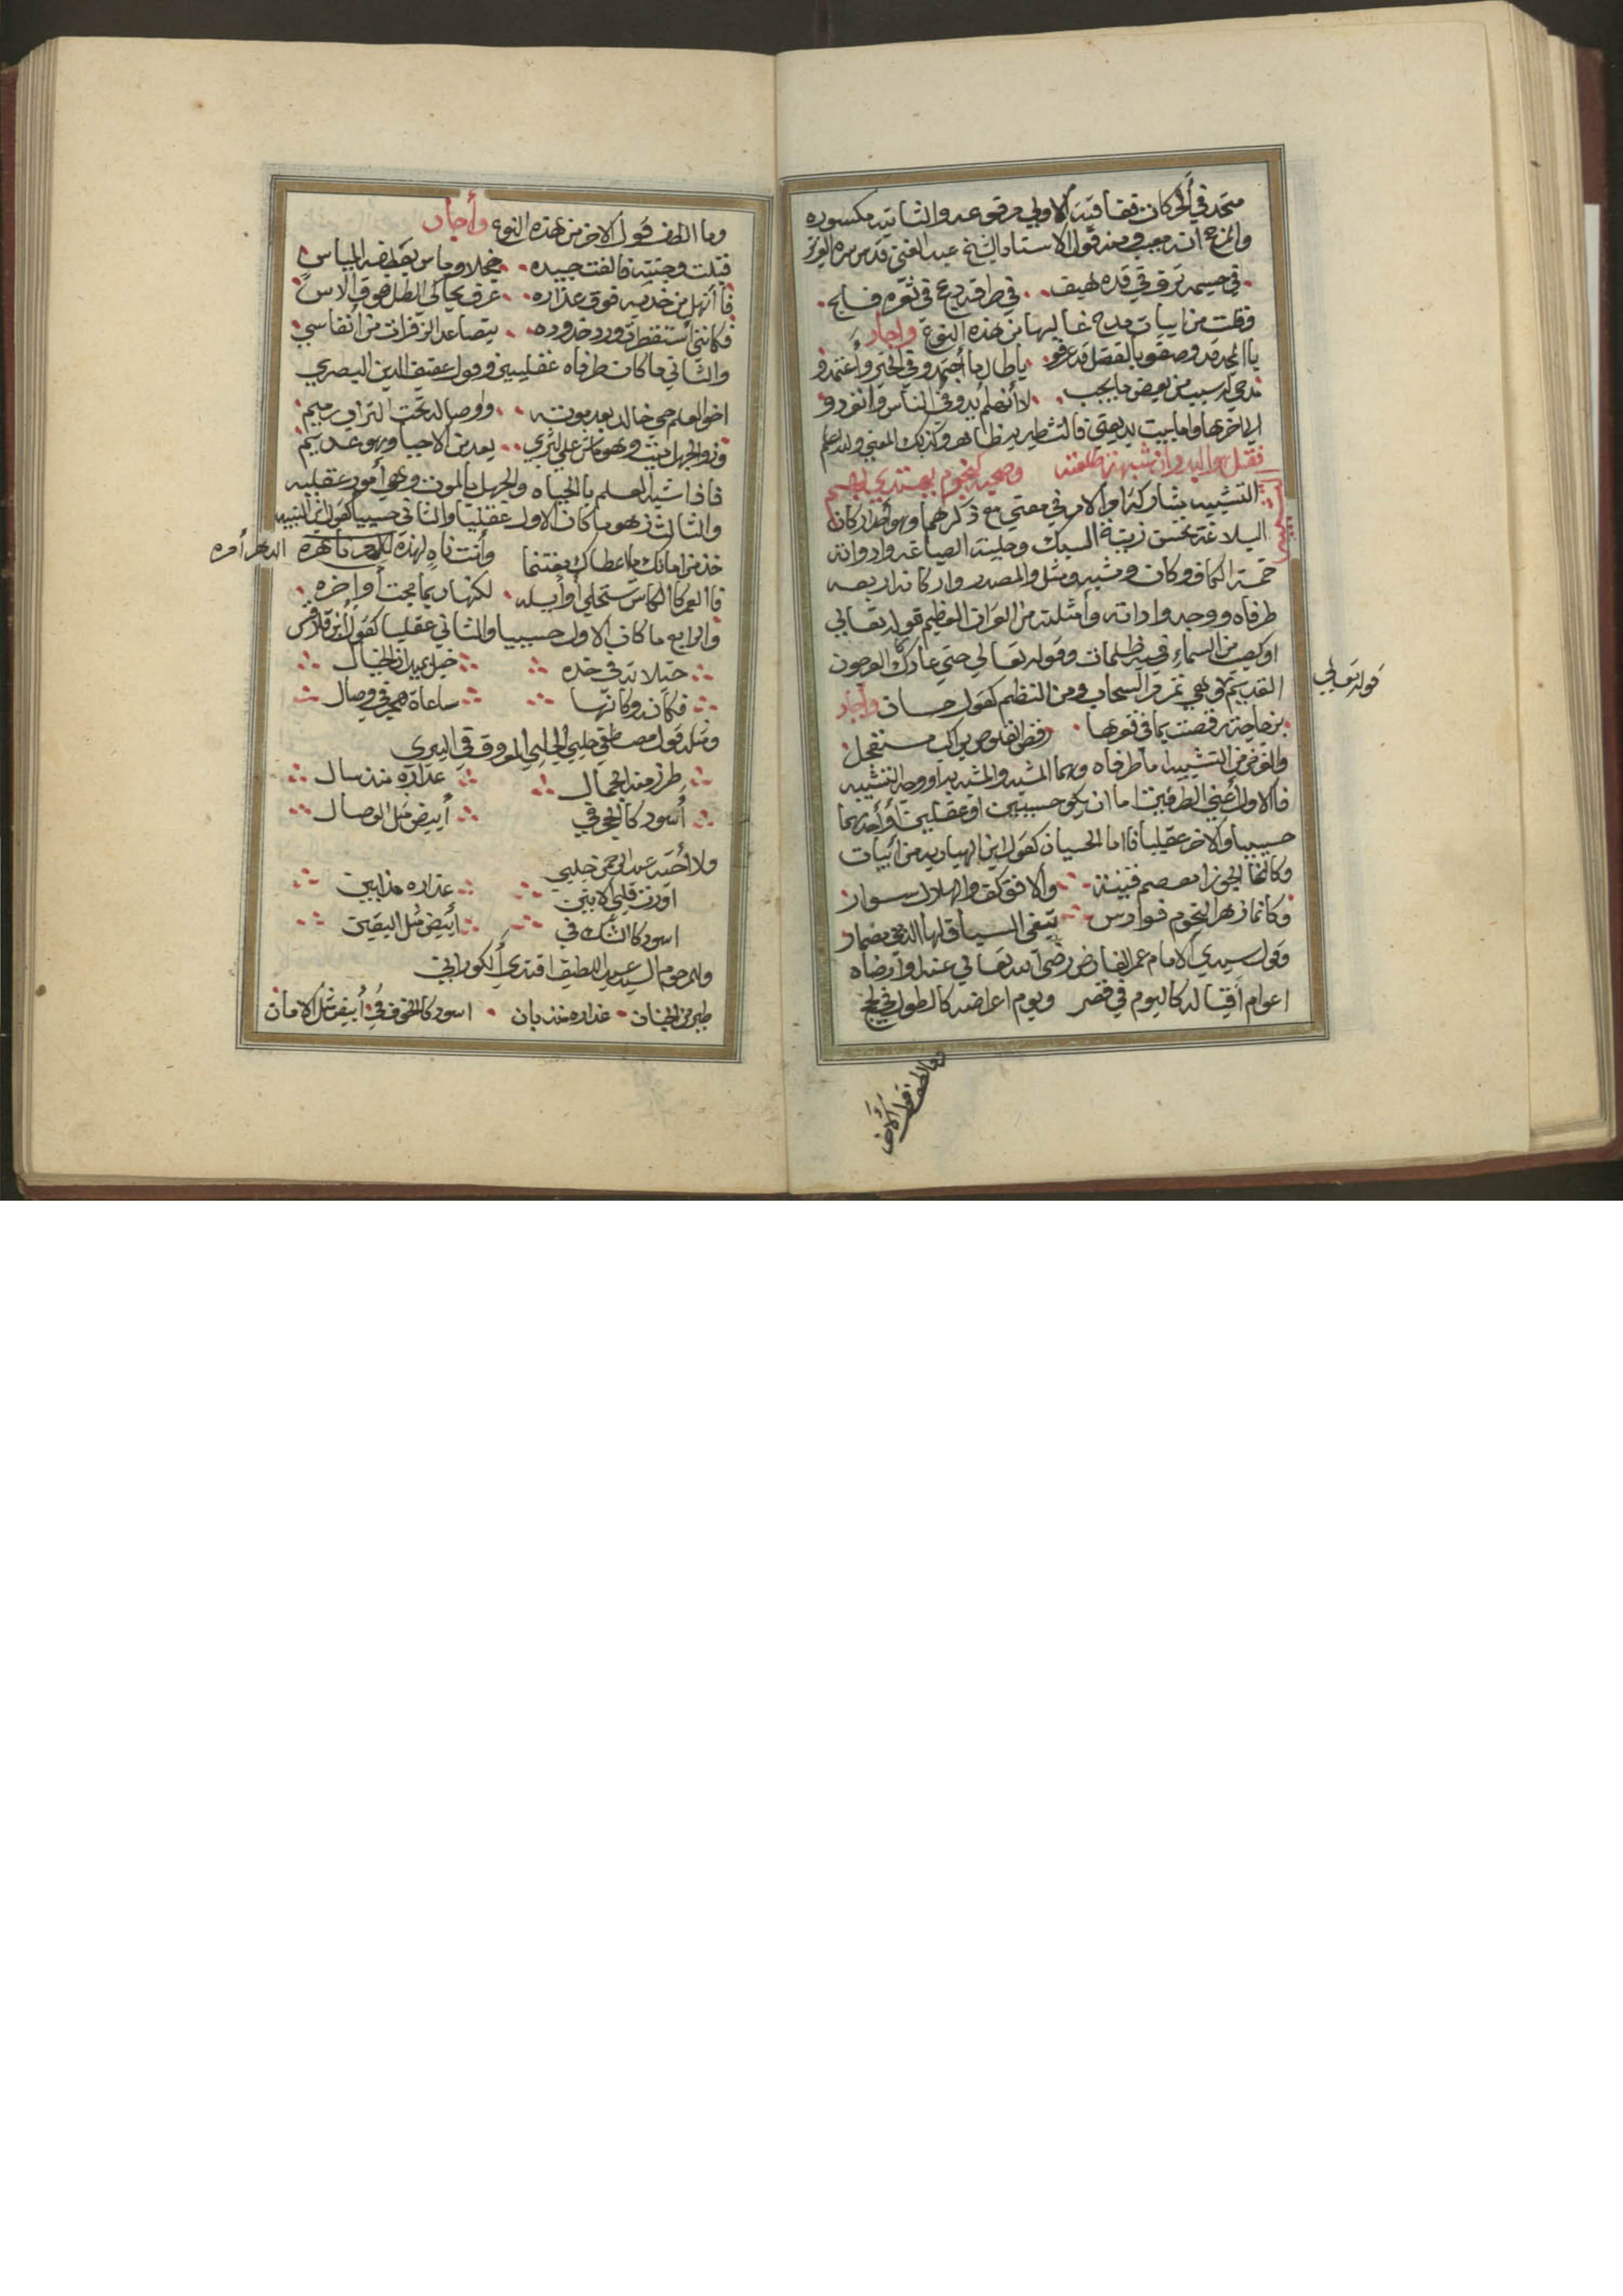 متحد في الحركات فقافية الاولي مرفوعه والثانيه مكسوره
والمزج انه معيب ومنه قول الاستاد الشيخ عبد الغني قدس سره العزيز
في جسمه ترف في قده هيف في طرفه دعج في ثغره فلج
وقلت من ابيات مدح غالبها من هذه النوع واجاد
يا المجد قد وصفو بالفضل قد عرفو يا طال ما اجتهدو في الخير واعتمدو
من بعض ما يجب لا انهم بدو في الناس وانفردو
الي اخرها واما بيت بديعتي فالتشطير ظاهر وكذلك المعني والله اعلم
فقل هو البدر وان شبهت طلعته وصحبه كنجوم يهتدي بهم
التشبيه مشاركة امر لامر في معني مع ذكرهما وهو احد اركان
البلاغة تحسن زينة السبك وحلية الصياغه وادواته
خمسة الكاف وكان وشبه ومثل والمصدر واركانه اربعه
طرفاه ووجه واداته وامثلته من القران العظيم قوله تعالي
او كصيب من السماء فيه ظلمات وقوله تعالي حتي عاد كالعرجون
القديم وهي تمر مر السحاب ومن النظم كقول حسان واجاد
قوله تعالي
بزجاجة رقصت بما في قعرها رقص القلوص براكب مستعجل
والغرض من التشبيه اما طرفاه وهما المشبه والمشبه به او وجه التشبيه
فالاول اعني الطرفين اما ان يكو حسيين او عقليين او احدهما
حسيا والاخر عقليا فاما الحسيان كقول ابن الهباريه من ابيات
وكانما الجوزا معصم قينة والافق كف والهلال سوار
وكانما زهر النجوم فوارس تبغي السباق لها الدجي مضمار
وقول سيدي الامام عمر الفارض رضي الله تعالي عنه وارضاه
اعوام اقباله كاليوم في قصر ويوم اعراضه كالطول في الحجج
وما الطف قول الاخر
وما الطف قول الاخر من هذه النوع وأجاد
قبلت وجنته فالفت جيده خجلا وماس بعطفه المياس
فانهل من خديه فوق عذاره عرق يحاكي الطل فوق الاس
فكانني استقطرت ورد خدوده بتصاعد الزفرات من انفاسي
والثاني ما كان طرفاه عقليين وقول عفيف الدين البصري
اخو العلم حي خالد بعد موته واوصاله تحت التراب رميم
وذو الجهل ميت وهو ماش علي الثري يعد من الاحيا وهو عديم
فاذا شبه العلم بالحياه والجهل بالموت وهي أمور عقليه
والثالث زهو ما كان الاول عقليا والثاني حسيا كقول ابن النبيه
خذ من زمانك ما اعطاك مغتنما وأنت ناه لهذه الدهر آمره
فالعمر كالكاس تستحلي أوايله لكنه ربما مجت أواخره
والرابع ما كان الاول حسيا والثاني عقليا كقول ابن قلاقس
خيلانه في خده خيل بميدان الخيال
فكانه وكانها ساعاة هجر في وصال
ومثله قول مصطفي جلبي الحلبي المعروف في البيري
طرز منه الجمال عذاره منذ سال
أسود كالهجر في أبيض مثل الوصال
ولاخيه عبد الرحمن جلبي
اورث قلبي الانين عذاره مذ ابين
اسود كالشك في ابيض مثل اليقين
والمرحوم السيد عبد اللطيف افندي الكوراني
عذاره منذ بان اسود كالخوف في أبيض مثل الامان